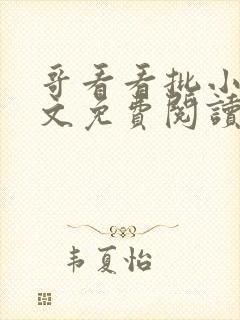 哥看看批小
文免費閱讀
韦夏怡